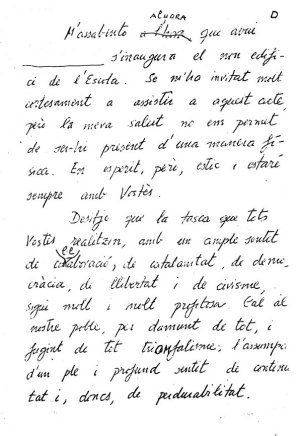 ALHORA
M'assabento a l'hora que avui
s'inaugura el nou edifi-
ci de l'Escola. Se m'ha invitat molt
cortesament a assistir a aquest acte,
però la meva salut no em permet
de ser-hi present d'una manera fí-
sica. En esperit, però, estic i estaré
sempre amb Vostès.
Desitjo que la tasca que tots
Vostès realitzin, amb un ample sentit
de col·laboració, de catalanitat, de demo-
cràcia, de llibertat i de civisme,
sigui molt i molt profitosa. Cal al
nostre poble, per damunt de tot, i
fugint de tot triomfalisme, l'assumpció
d'un ple i profund sentit de continuï-
tat i, doncs, de perdurabilitat.